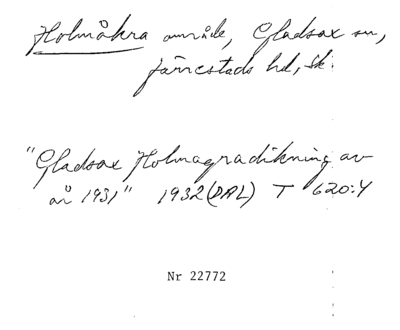 Holmåkra område, Gladsax sn,
järrestads hd, Sk.
"Gladsax Holmagradikning av
år 1931" 1932 (DAL) T 620:4
Nr 22772